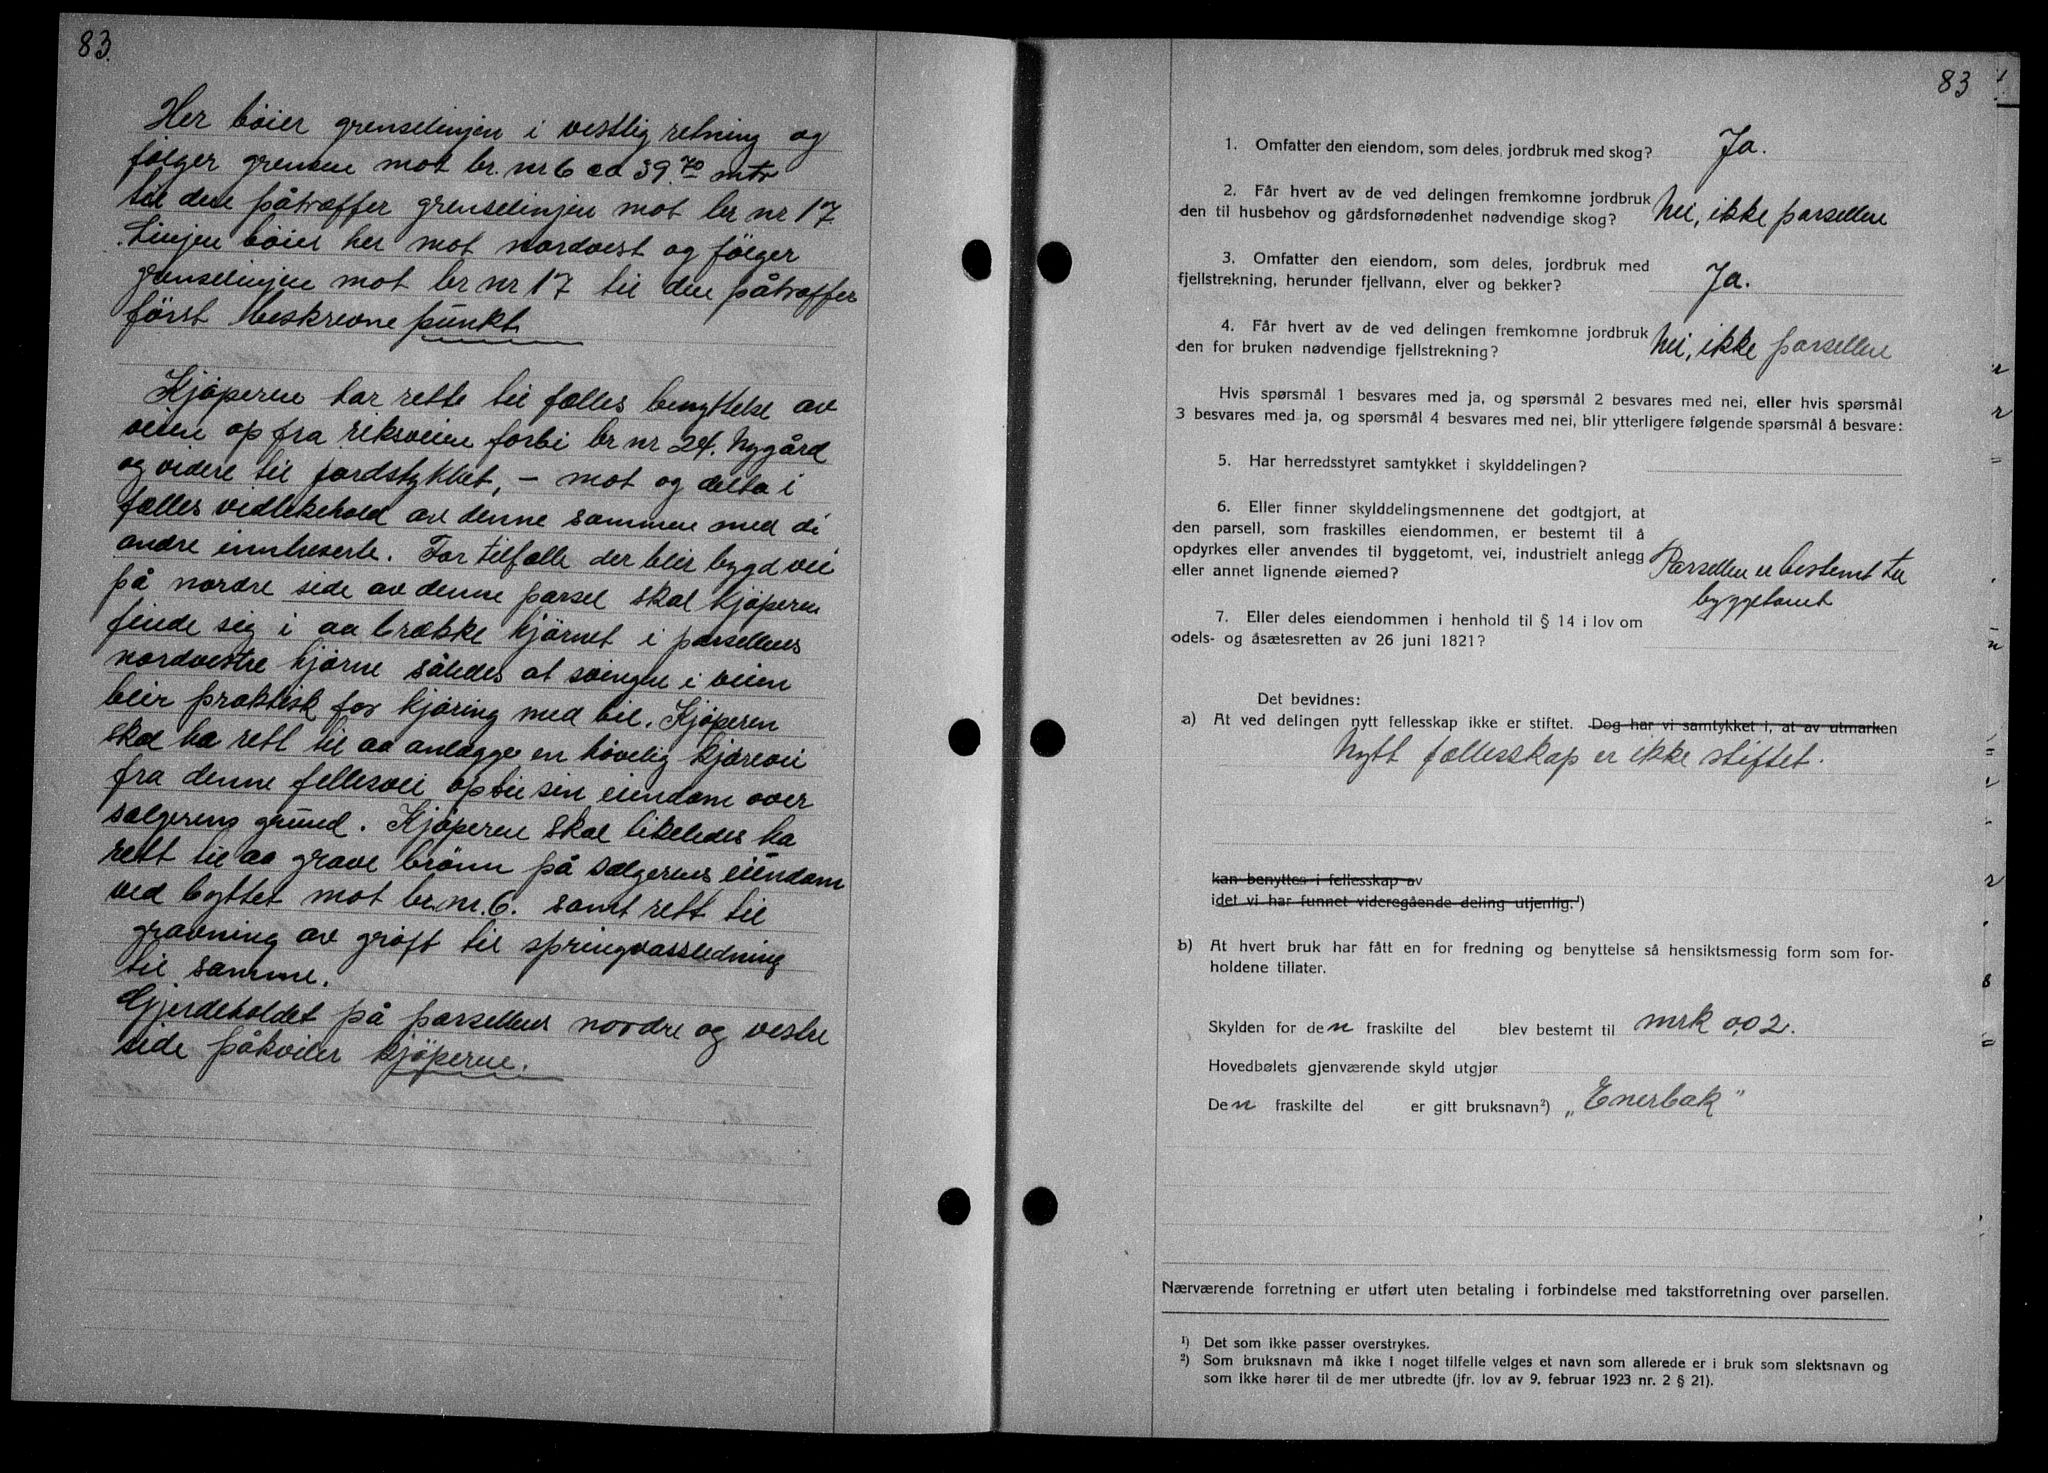 83.
Her bøier grenselinjen i vestlig retning og
følger grensen mot br. nr 6 ca 39.70 mtr
til den påtræffer grenselinjen mot br nr 17.
Linjen bøier her mot nordvest og følger
grenselinjen mot br nr 17 til den påtræffer
først beskrevne punkt.
Kjøperen har rett til fælles benyttelse av
veien op fra riksveien forbi br nr 24. Nygård
og videre til jordstykket, – mot og delta i
fælles vedlikehold av denne sammen med de
andre intereserte. For tilfælle der blir bygd vei
på nordre side av denne parsel skal kjøperen
finde sig i aa brække hjørnet i parsellens
nordvestre hjørne således at svingen i veien
blir praktisk for kjøring med bil. Kjøperen
skal ha rett til aa anlægge en høvelig kjørevei
fra denne fellesvei op til sin eiendom over
sælgerens grund. Kjøperen skal likeledes ha
rett til aa grave brønn på sælgerens eiendom
ved byttet mot br. nr. 6. samt rett til
gravning av grøft til springvassledning
til samme.
Gjerdeholdet på parsellens nordre og vestre
side påkviler kjøperen.
83
1. Omfatter den eiendom, som deles, jordbruk med skog? Ja.
2. Får hvert av de ved delingen fremkomne jordbruk
den til husbehov og gårdsfornødenhet nødvendige skog? Nei, ikke parsellen
3. Omfatter den eiendom, som deles, jordbruk med
fjellstrekning, herunder fjellvann, elver og bekker? Ja.
4. Får hvert av de ved delingen fremkomne jordbruk
den for bruken nødvendige fjellstrekning? Nei, ikke parsellen
Hvis spørsmål 1 besvares med ja, og spørsmål 2 besvares med nei, eller hvis spørsmål
3 besvares med ja, og spørsmål 4 besvares med nei, blir ytterligere følgende spørsmål å besvare:
5. Har herredsstyret samtykket i skylddelingen?
6. Eller finner skylddelingsmennene det godtgjort, at
den parsell, som fraskilles eiendommen, er bestemt til å
opdyrkes eller anvendes til byggetomt, vei, industrielt anlegg
eller annet lignende øiemed? Parsellen er bestemt til
byggetomt
7. Eller deles eiendommen i henhold til § 14 i lov om
odels- og åsætesretten av 26 juni 1821?
Det bevidnes:
a) At ved delingen nytt fellesskap ikke er stiftet. Dog har vi samtykket i, at av utmarken
Nytt fællesskap er ikke stiftet.
kan benyttes i fellesskap av
idet vi har funnet videregående deling utjenlig.¹)
b) At hvert bruk har fått en for fredning og benyttelse så hensiktsmessig form som for-
holdene tillater.
Skylden for den fraskilte del blev bestemt til mrk 0,02.
Hovedbølets gjenværende skyld utgjør
Den fraskilte del er gitt bruksnavn²) „Enerbak"
Nærværende forretning er utført uten betaling i forbindelse med takstforretning over parsellen.
¹) Det som ikke passer overstrykes.
²) Som bruksnavn må ikke i noget tilfelle velges et navn som allerede er i bruk som slektsnavn og
som ikke hører til de mer utbredte (jfr. lov av 9. februar 1923 nr. 2 § 21).